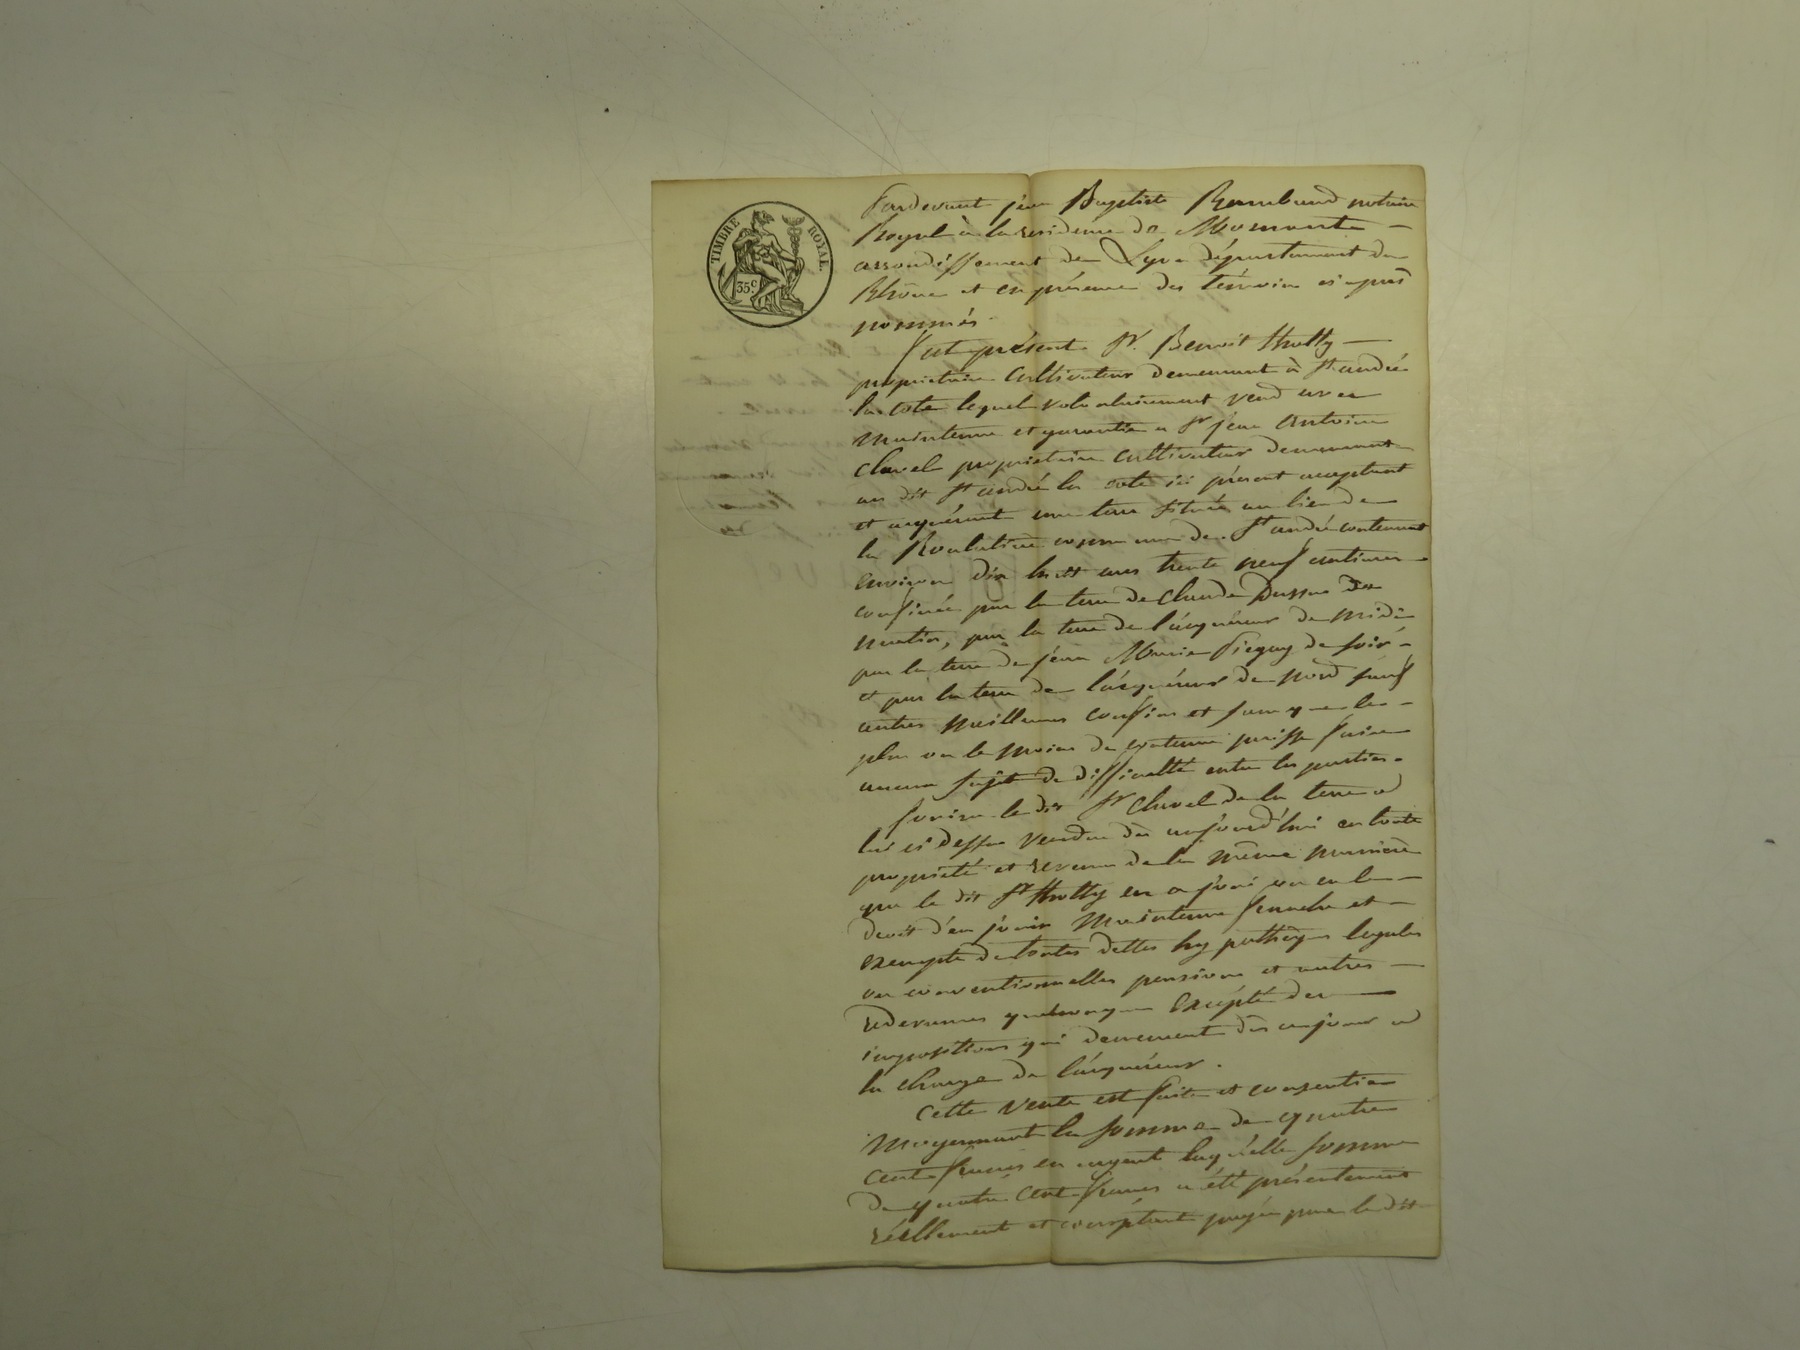 TIMBRE ROYAL.
35c.
Pardevant jean Baptiste Rambaud notaire
Royal à la residence de Mornante
arrondissement de Lyon département du
Rhône et en présence des témoins ci après
nommés
fut présent Sr. Benoit Tholly
propriétaire cultivateur demeurant à St andré
la cote lequel volontairement vend avec
maintenue et garantie a Sr jean Antoine
Clavel propriétaire cultivateur demeurant
au dit St andré la cote ici présent acceptant
et acquérant une terre située au lieu de
la commune de St andré contenant
environ dix huit ares trente neuf centiares
confinée par la terre de Claude de
matin, par la terre de l'acquéreur de midi
par la terre de jean Marie de soir
et par la terre de l'acquéreur de nord sauf
autres meilleures confins et sans que le
plus ou le moins de contenue puisse faire
aucun sujet de difficulté entre les parties.
jouira le dit Sr Clavel de la terre a
lui ci dessus vendue dès aujourd'hui en toute
propriété et revenu de la même manière
que le dit Sr Tholly en a joui ou eu le
droit d'en jouir maintenue franche et
exempte de toutes dettes hypothèques legales
ou conventionnelles pensions et autres
redevances quelconques Excepté des
impositions qui demeurent dès ce jour a
la charge de l'acquéreur.
Cette vente est faite et consentie
moyennant la somme de quatre
cent francs en argent laquelle somme
de quatre cent francs a été présentement
réellement et comptant payée par le dit